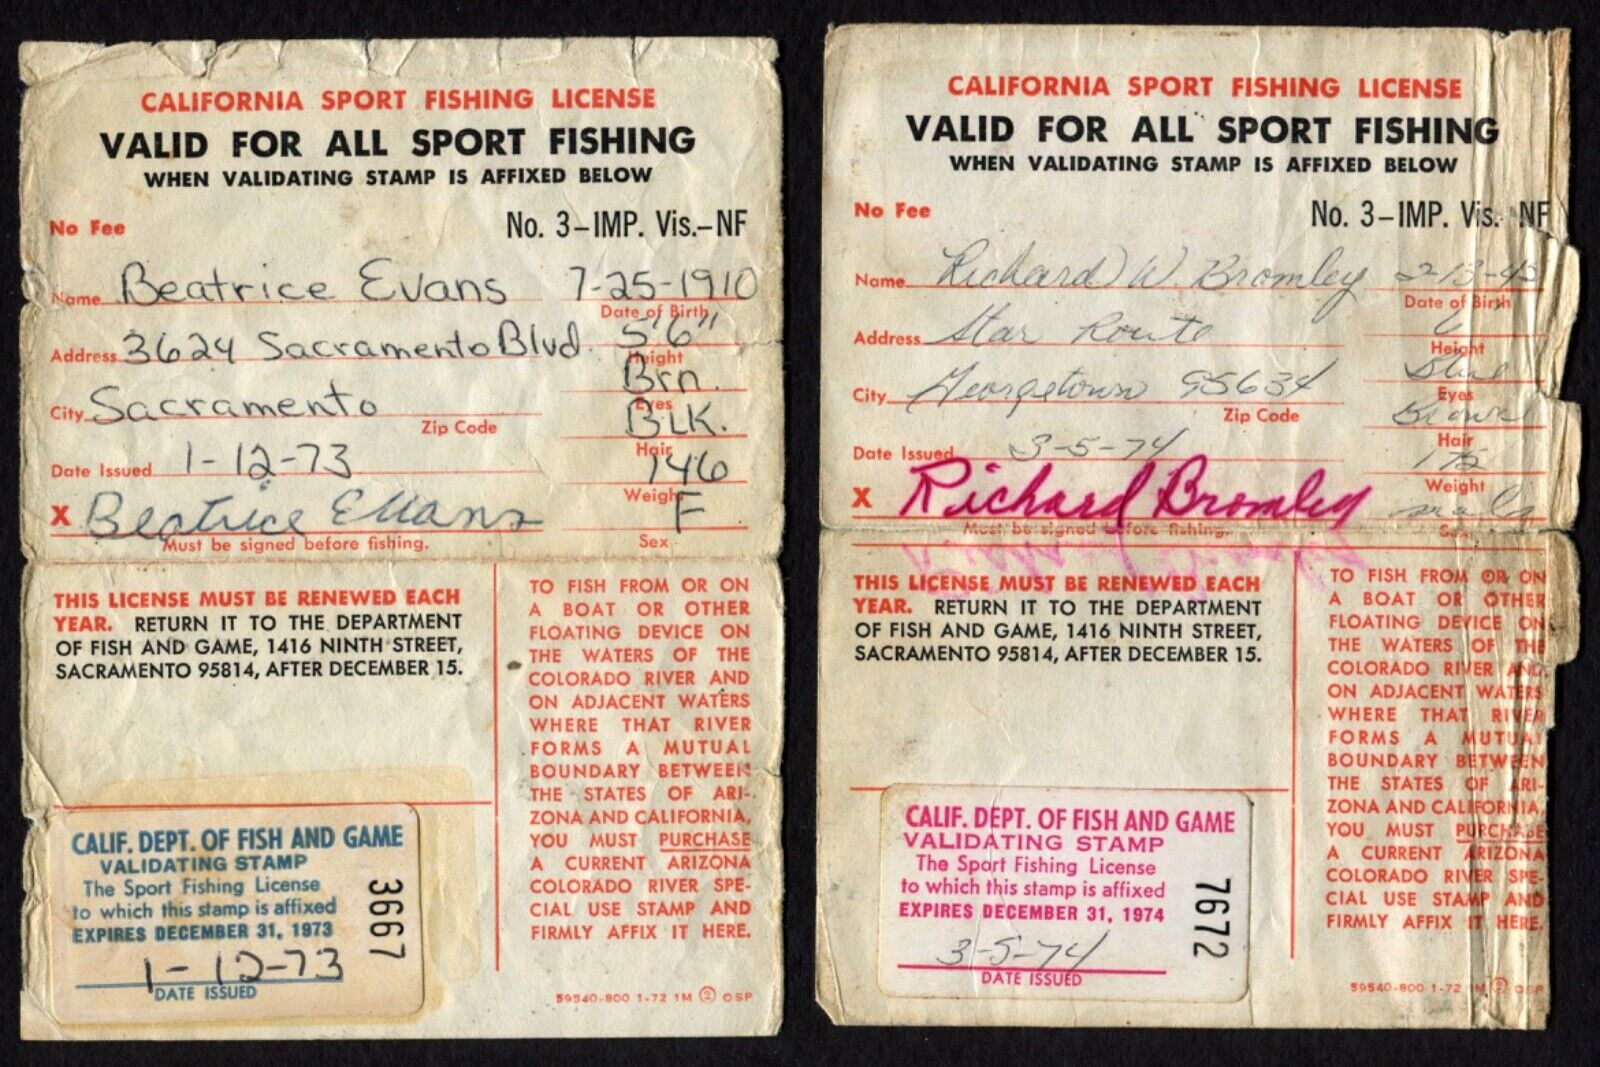 CALIFORNIA SPORT FISHING LICENSE
VALID FOR ALL SPORT FISHING
WHEN VALIDATING STAMP IS AFFIXED BELOW
No Fee No. 3-IMP. Vis.-NF
Name Beatrice Evans 7-25-1910
Date of Birth
Address 3624 Sacramento Blvd. 5'6"
Height
Brn.
City Sacramento Eyes
Zip Code BLK.
Hair
Date Issued 1-12-73 146
Weight
X Beatrice Evans F
Must be signed before fishing. Sex
THIS LICENSE MUST BE RENEWED EACH
YEAR. RETURN IT TO THE DEPARTMENT
OF FISH AND GAME, 1416 NINTH STREET,
SACRAMENTO 95814, AFTER DECEMBER 15.
TO FISH FROM OR ON
A BOAT OR OTHER
FLOATING DEVICE ON
THE WATERS OF THE
COLORADO RIVER AND
ON ADJACENT WATERS
WHERE THAT RIVER
FORMS A MUTUAL
BOUNDARY BETWEEN
THE STATES OF ARI-
ZONA AND CALIFORNIA,
YOU MUST PURCHASE
A CURRENT ARIZONA
COLORADO RIVER SPE-
CIAL USE STAMP AND
FIRMLY AFFIX IT HERE.
CALIF. DEPT. OF FISH AND GAME
VALIDATING STAMP
The Sport Fishing License
to which this stamp is affixed
EXPIRES DECEMBER 31, 1973
1-12-73
DATE ISSUED
3667
59540-800 1-72 1M 2 OSP
CALIFORNIA SPORT FISHING LICENSE
VALID FOR ALL SPORT FISHING
WHEN VALIDATING STAMP IS AFFIXED BELOW
No Fee No. 3-IMP. Vis.-NF
Name Richard W. Bromley 2-13-45
Date of Birth
Address Star Route 6'
Height
Blue
City Georgetown 95634 Eyes
Zip Code Brown
Hair
Date Issued 3-5-74 175
Weight
X Richard Bromley male
Must be signed before fishing. Sex
THIS LICENSE MUST BE RENEWED EACH
YEAR. RETURN IT TO THE DEPARTMENT
OF FISH AND GAME, 1416 NINTH STREET,
SACRAMENTO 95814, AFTER DECEMBER 15.
TO FISH FROM OR ON
A BOAT OR OTHER
FLOATING DEVICE ON
THE WATERS OF THE
COLORADO RIVER AND
ON ADJACENT WATERS
WHERE THAT RIVER
FORMS A MUTUAL
BOUNDARY BETWEEN
THE STATES OF ARI-
ZONA AND CALIFORNIA,
YOU MUST PURCHASE
A CURRENT ARIZONA
COLORADO RIVER SPE-
CIAL USE STAMP AND
FIRMLY AFFIX IT HERE.
CALIF. DEPT. OF FISH AND GAME
VALIDATING STAMP
The Sport Fishing License
to which this stamp is affixed
EXPIRES DECEMBER 31, 1974
3-5-74
DATE ISSUED
7672
59540-800 1-72 1M 2 OSP